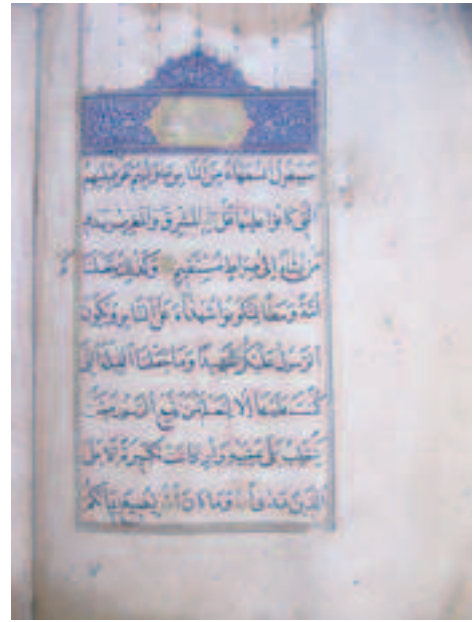 سَيَقُولُ السُّفَهَاءُ مِنَ النَّاسِ مَا وَلّٰيهُمْ عَنْ قِبْلَتِهِمُ
الَّتِي كَانُوا عَلَيْهَا قُلْ لِلّٰهِ الْمَشْرِقُ وَالْمَغْرِبُ يَهْدِي
مَنْ يَشَاءُ إِلَى صِرَاطٍ مُسْتَقِيمٍ وَكَذَلِكَ جَعَلْنَاكُمْ
أُمَّةً وَسَطًا لِتَكُونُوا شُهَدَاءَ عَلَى النَّاسِ وَيَكُونَ
الرَّسُولُ عَلَيْكُمْ شَهِيدًا وَمَا جَعَلْنَا الْقِبْلَةَ الَّتِي
كُنْتَ عَلَيْهَا إِلَّا لِنَعْلَمَ مَنْ يَتَّبِعُ الرَّسُولَ مِمَّنْ
يَنْقَلِبُ عَلَى عَقِبَيْهِ وَإِنْ كَانَتْ لَكَبِيرَةً إِلَّا عَلَى
الَّذِينَ هَدَى اللّٰهُ وَمَا كَانَ اللّٰهُ لِيُضِيعَ إِيمَانَكُمْ